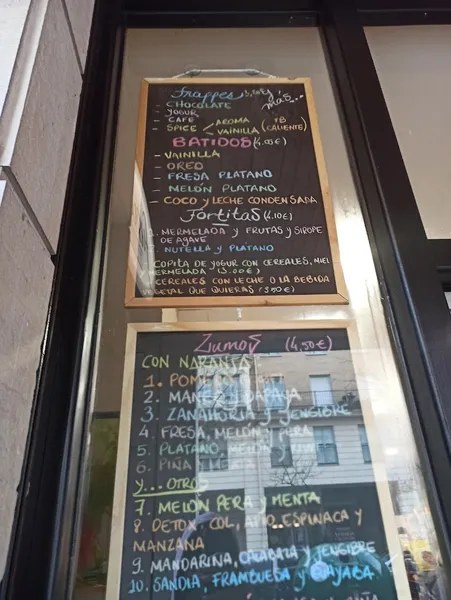 Frappes
y más...
- CHOCOLATE
- YOGUR
- CAFÉ
- SPICE < AROMA
VAINILLA (TB CALIENTE)
BATIDOS
- VAINILLA
- OREO
- FRESA PLATANO
- MELÓN PLATANO
- COCO Y LECHE CONDENSADA
Tortitas (4.10€)
MERMELADA Y FRUTAS Y SIROPE
DE AGAVE
NUTELLA Y PLATANO
COPITA DE YOGUR CON CEREALES, MIEL
MERMELADA (3.00€)
CEREALES CON LECHE O LA BEBIDA
VEGETAL QUE QUIERAS
Zumos (4,50€)
CON NARANJA
1.
2. PAPAYA
3. ZANAHORIA Y JENGIBRE
4. FRESA, MELÓN Y PERA
5. PLATANO, MELON Y
6. PIÑA
Y... OTROS
7. MELÓN PERA Y MENTA
8. DETOX: COL, APIO, ESPINACA Y
MANZANA
9. MANDARINA, CALABAZA Y JENGIBRE
10. SANDÍA, FRAMBUESA Y GUAYABA